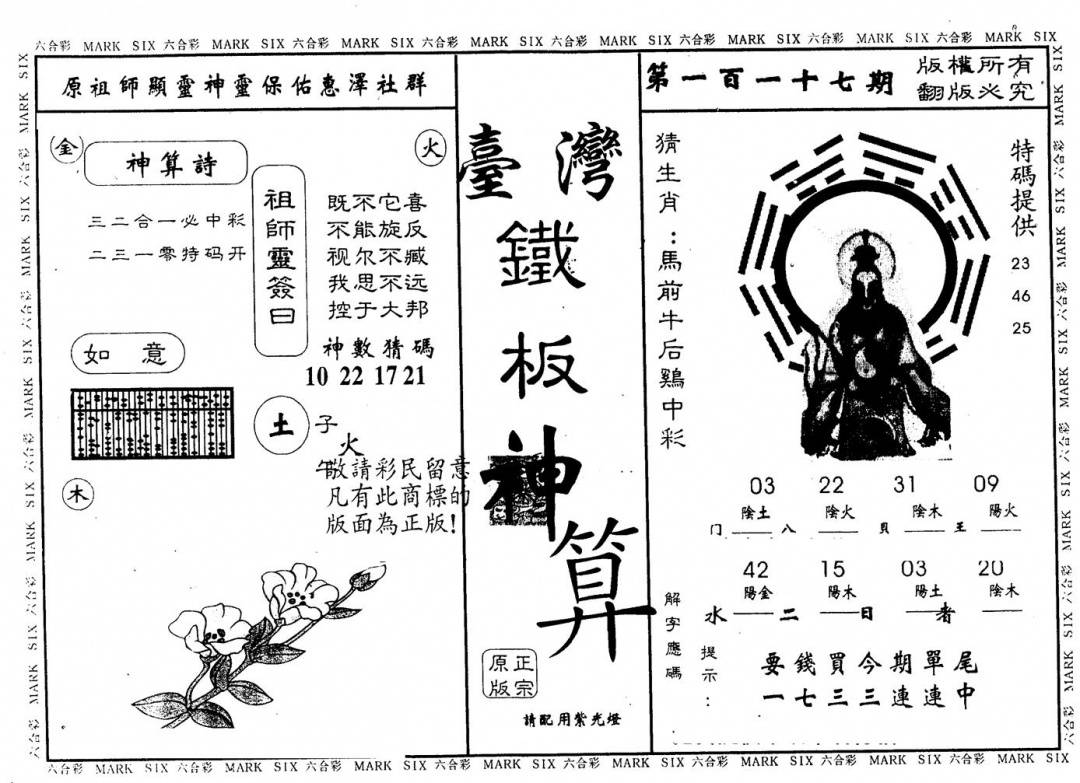 六合彩 MARK SIX 六合彩 MARK SIX 六合彩 MARK SIX 六合彩 MARK SIX 六合彩 MARK SIX 六合彩 MARK SIX 六合彩 MARK SIX 六合彩 MARK SIX
原祖師顯靈神靈保佑惠澤社群
金
火
神算詩
三二合一必中彩
二三一零特码开
祖師靈簽曰
既不它喜
不能旋反
视尔不臧
我思不远
控于大邦
神數猜碼
10 22 17 21
如意
土
子
火
午
敬請彩民留意
凡有此商標的
版面為正版!
木
臺灣
鐵板神算
正宗
原版
請配用紫光燈
第一百一十七期
版權所有
翻版必究
猜生肖:馬前牛后鷄中彩
特碼提供
23
46
25
03 22 31 09
陰土 陰火 陰木 陽火
门 八 貝 王
42 15 03 20
陽金 陽木 陽土 陰木
水 二 日 者
解字應碼
提示:
要錢買今期單尾
一七三三連連中
六合彩 MARK SIX 六合彩 MARK SIX 六合彩 MARK SIX 六合彩 MARK SIX 六合彩 MARK SIX 六合彩 MARK SIX 六合彩 MARK SIX 六合彩 MARK SIX